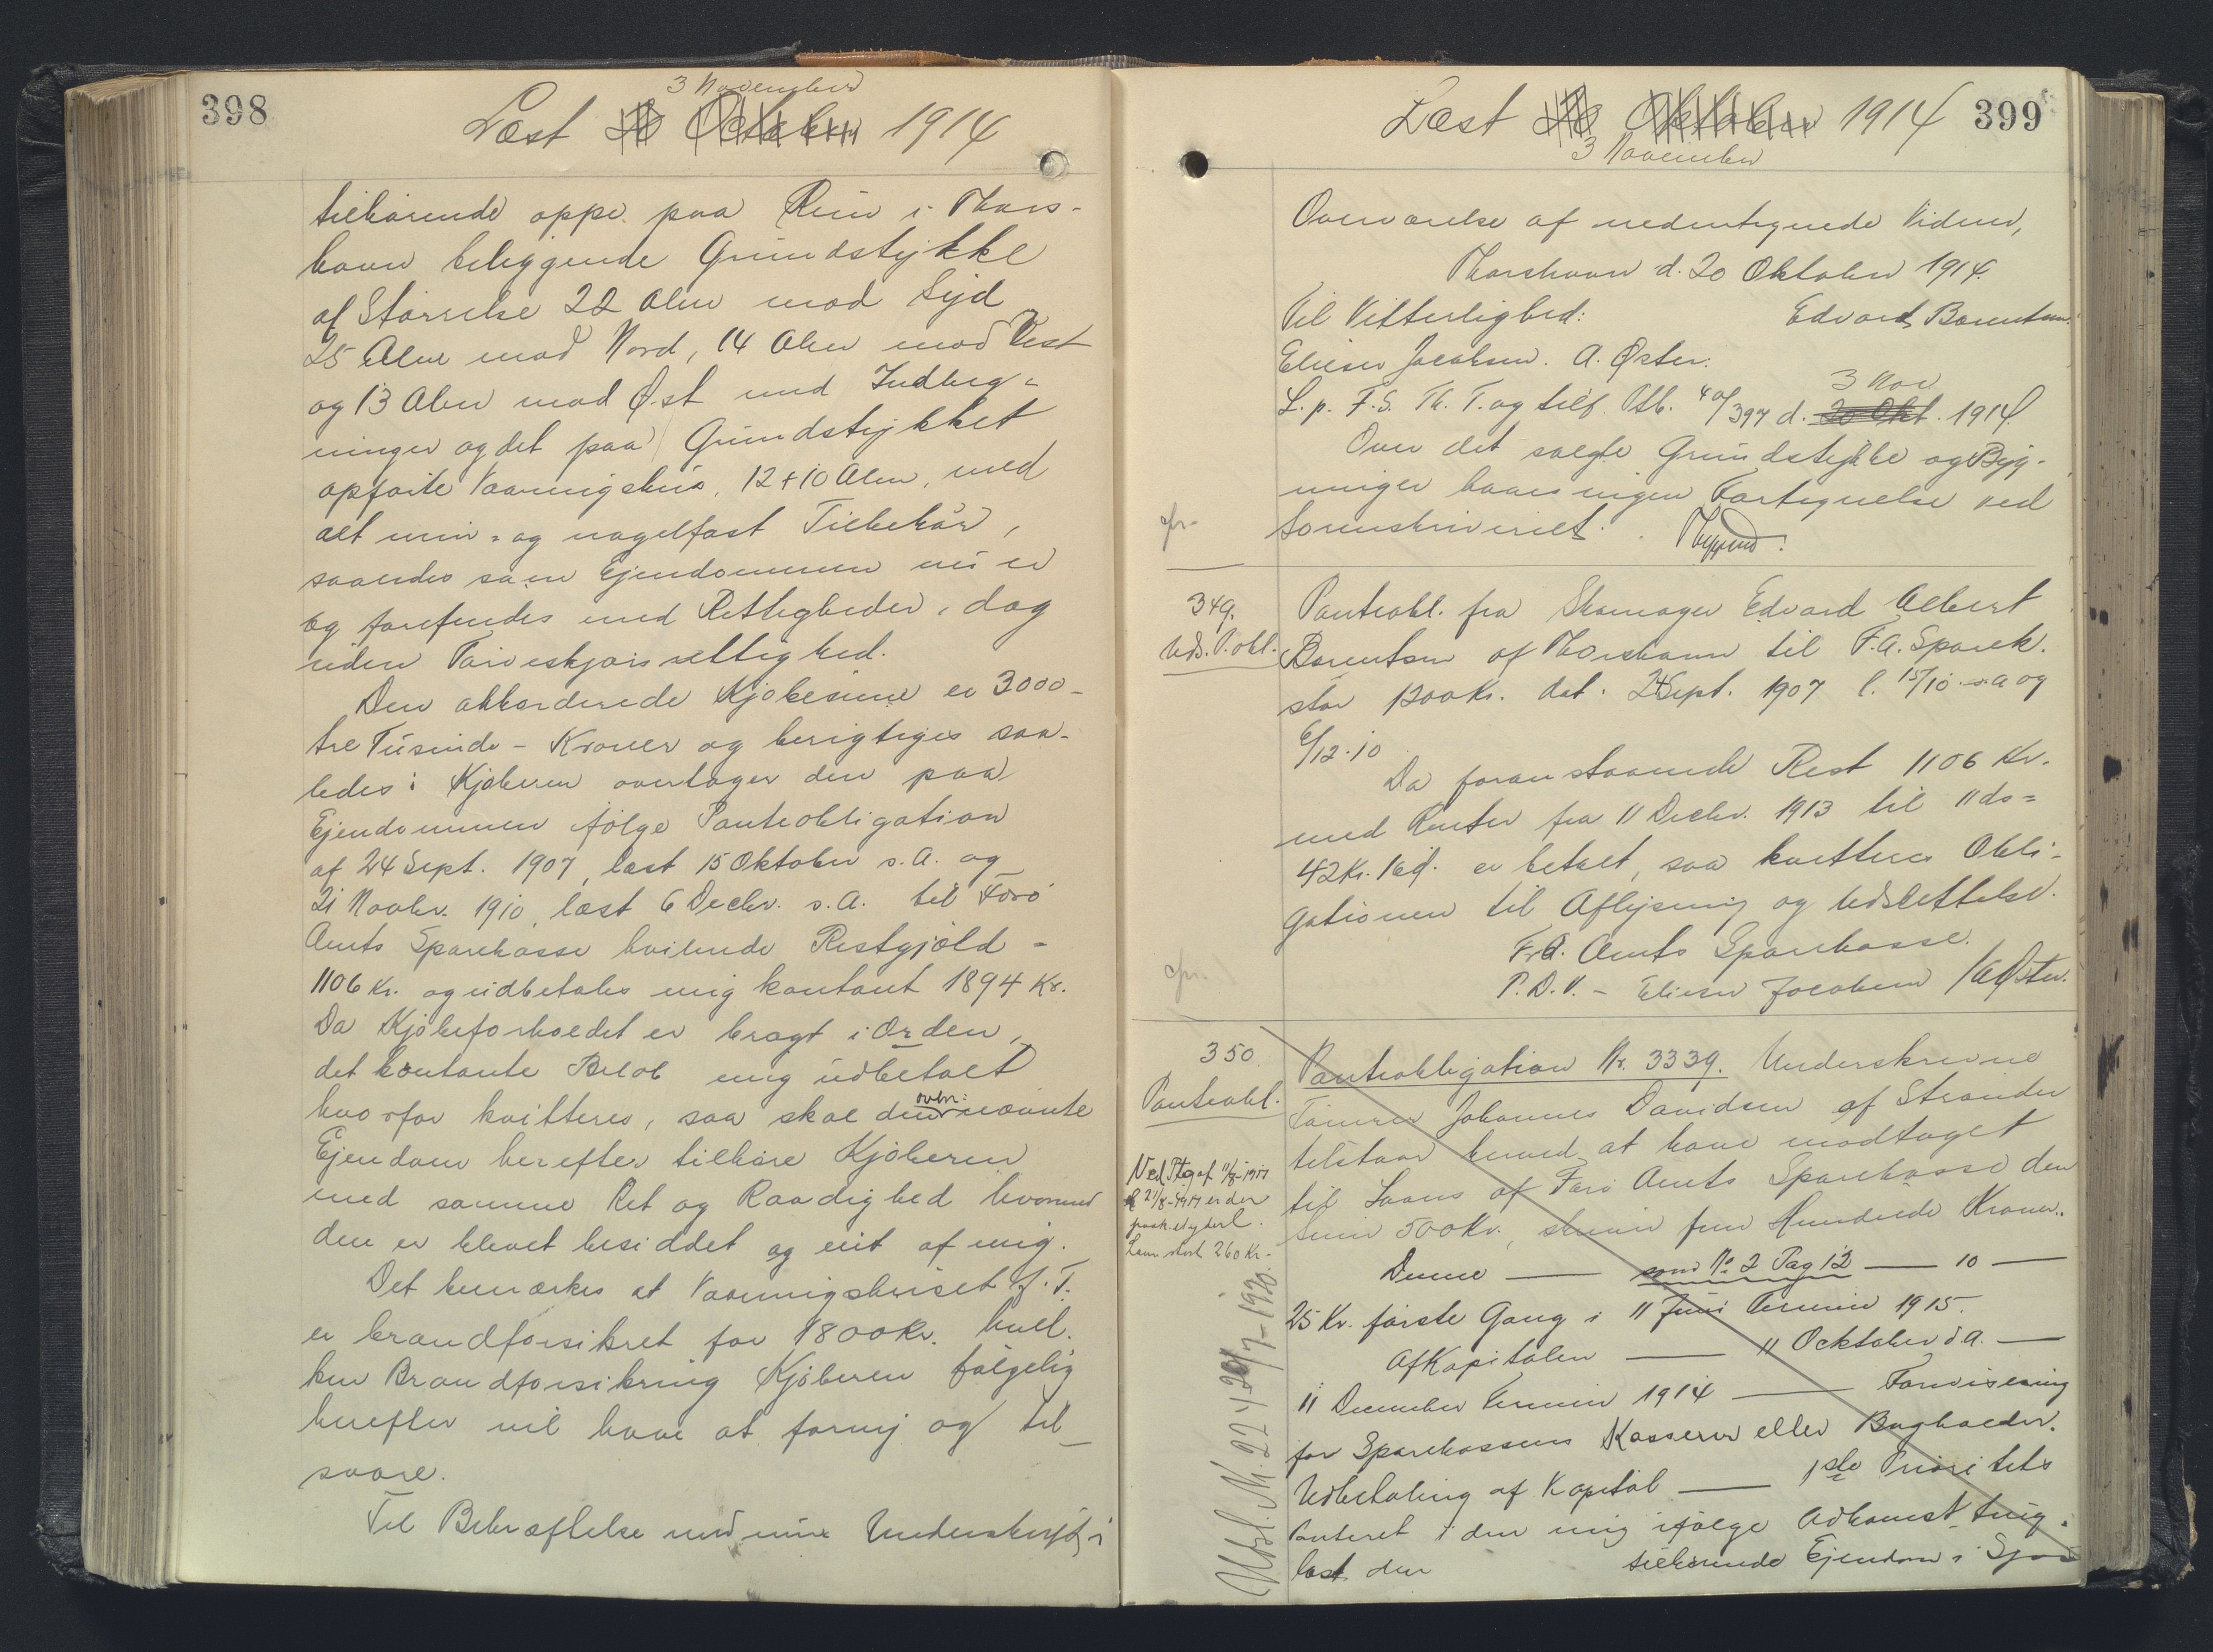 398
3 November
Læst 20 October 1914
tilhørende oppe paa Rein i Thors-
havn beliggende Grundstykke
af Størrelse 22 Alen mod Syd
25 Alen mod Nord, 14 Alen mod Vest
og 13 Alen mod Øst med Indheg-
ninger og det paa Grundstykket
opførte Vaaningshus, 12 + 10 Alen, med
alt mur- og nagelfast Tilbehør,
saaledes som Ejendommen nu er
og forefindes med Rettigheder, dog
uden Tørveskjærsrettighed.
Den akkorderede Kjøbesum er 3000-
tre Tusinde - Kroner og berigtiges saa-
ledes: Kjøberen overtager den paa
Ejendommen ifølge Panteobligation
af 24 Sept. 1907, læst 15 Oktober s. A. og
21 Novbr. 1910, læst 6 Decbr. s. A. til Færø
Amts Sparekasse hvilende Restgjæld -
1106 Kr. og udbetales mig kontant 1894 Kr.
Da Kjøbeforholdet er bragt i Orden,
det kontante Beløb mig udbetalt
hvorfor kvitteres, saa skal den ovfr: nævnte
Ejendom herefter tilhøre Kjøberen
med samme Ret og Raadighed hvormed
den er blevet besiddet og eiet af mig.
Det bemærkes at Vaaningshuset f. T.
er brandforsikret for 1800 Kr. hvil-
ken Brandforsikring Kjøberen følgelig
herefter vil have at forny og til-
svare.
Til Bekræftelse med min Underskrift i
Læst 20 Oktober 1914 399
3 November
Overværelse af undertegnede Vidner,
Thorshavn d. 20 Oktober 1914.
Til Vitterlighed: Edvard Barentsen.
Elieser Jacobsen. A. Øster.
L. p. F. S. Th. T. og tilf. Ptb. 4 of/397 d. 20 Okt. 3 Nov 1914.
Over det solgte Grundstykke og Byg-
ninger haves ingen Fortegnelse ved
Sorenskriveriet.
cfr.
349.
Uds. P. obl.
Panteobl. fra Skomager Edvard Albert
Barentsen af Thorshavn til F. A. Sparek.
stor 1200 Kr. dat. 24 Sept. 1907 l. 15/10 s. A og
6/12.10
Da foranstaaende Rest 1106 Kr.
med Renter fra 11 Decbr. 1913 til 11 ds =
42 Kr. 16 Ø. er betalt, saa kvitteres Obli-
gationen til Aflysning og Udslettelse.
Fr. A. Amts Sparekasse.
P. D. V. - Elieser Jacobsen / A Øster.
cfr.
350.
Panteobl.
Panteobligation Nr. 3339. Underskrevne
Tømrer Johannes Davidsen af Strænder
tilstaar herved at have modtaget
til Laans af Færø Amts Sparekasse den
Sum 500 Kr., skriver fem Hundrede Kroner.
Denne — som No 2 Pag 12 — 10 —
25 Kr. første Gang i 11 Juni Termin 1915.
Af Kapitalen — 11 Ocktober d A. —
11 December Termin 1914 — Forevisning
for Sparekassens Kasserer eller Bogholder.
Udbetaling af Kapital — 1ste Prioritets
Panteret i den mig ifølge Adkomst ting-
læst den tilhørende Ejendom i Sjov
Ved Ptg af 11/8-1917
l 21/8-1917 er der
paah. et yderl.
Laan stort 260 Kr.
Udsl. Nr. 224 20/7-1920.